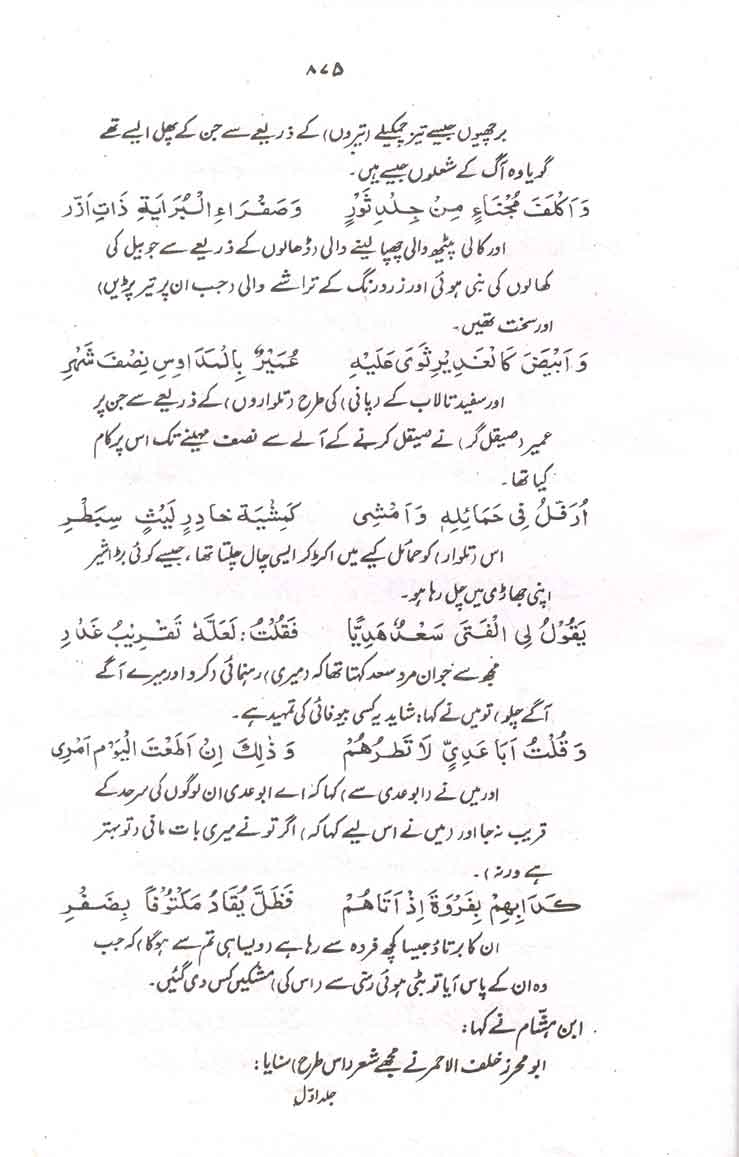 ۸۷۵
برچھیوں جیسے تیز چمکیلے (تیروں) کے ذریعے سے جن کے پھل ایسے تھے
گویا وہ آگ کے شعلوں جیسے ہیں۔
وَاَكْلَفَ مُجْنَاءٍ مِنْ جِلْدِ ثَوْرٍ وَصَفْرَاءِ الْبُرَايَةِ ذَاتِ اَزْر
اور کالی پیٹھ والی چھپا لینے والی (ڈھالوں کے ذریعے سے جو بیل کی
کھالوں کی بنی ہوئی اور زرد رنگ کے تراشے والی (جب ان پر تیر پڑیں)
اور سخت تھیں۔
وَاَبْيَضَ كَالْغَدِيْرِ ثَوَى عَلَيْهِ عُمَيْرٌ بِالْمَدَاوِسِ نِصْفَ شَهْرِ
اور سفید تالاب کے (پانی) کی طرح (تلواروں) کے ذریعے سے جن پر
عمیر (صیقل گر) نے صیقل کرنے کے آلے سے نصف مہینے تک اس پر کام
کیا تھا۔
اُرَفِّلُ فِى حَمَائِلِهٖ وَاَمْشِى كَمِشْيَةِ خَادِرٍ لَيْثٍ سِبَطْرِ
اس (تلوار) کو حمائل کیے میں اکڑ کر ایسی چال چلتا تھا، جیسے کوئی بڑا شیر
اپنی جھاڑی میں چل رہا ہو۔
يَقُوْلُ لِى الْفَتَى سَعْدٌ هَدِيًّا فَقُلْتُ: لَعَلَّهٗ تَقْرِيْبُ غَدْرِ
مجھ سے جوان مرد سعد کہتا تھا کہ (میری) رہنمائی (کرو اور میرے آگے
آگے چلو) تو میں نے کہا: شاید یہ کسی بیوفائی کی تمہید ہے۔
وَقُلْتُ اَبَا عَدِيٍّ لَا تَطُرْهُمْ وَذٰلِكَ اِنْ اَطَعْتَ الْيَوْمَ اَمْرِى
اور میں نے (ابو عدی سے) کہا کہ اے ابو عدی ان لوگوں کی سرحد کے
قریب نہ جا اور (میں نے اس لیے کہا کہ) اگر تو نے میری بات مانی (تو بہتر
ہے ورنہ)۔
كَدَابِهِمْ بِفَرْوَةَ اِذْ اَتَاهُمْ فَظَلَّ يُقَادُ مَكْتُوْفًا بِضَفْرِ
ان کا برتاؤ جیسا کچھ فردہ سے رہا ہے (ویسا ہی تم سے ہوگا) کہ جب
وہ ان کے پاس آیا تو بٹی ہوئی رسی سے (اس کی) مشکیں کس دی گئیں۔
ابن ہشّام نے کہا:
ابو محرز خلف الاحمر نے مجھے شعر (اس طرح) سنایا:
جلد اوّل